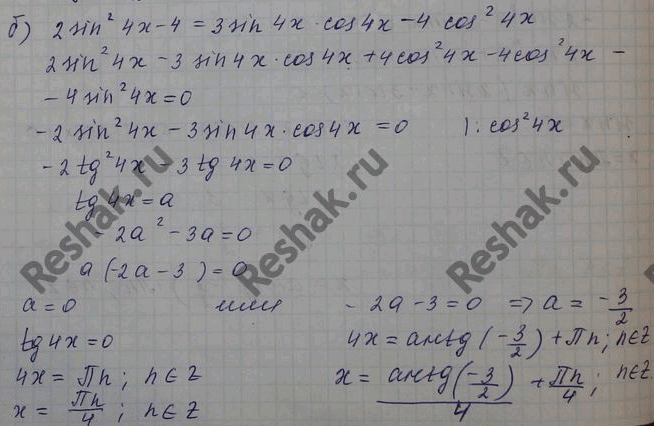 б) 2 sin² 4x - 4 = 3 sin 4x · cos 4x - 4 · cos² 4x
2 sin² 4x - 3 sin 4x · cos 4x + 4 cos² 4x - 4 cos² 4x -
- 4 sin² 4x = 0
- 2 sin² 4x - 3 sin 4x · cos 4x = 0 | : cos² 4x
- 2 tg² 4x - 3 tg 4x = 0
tg 4x = a
- 2a² - 3a = 0
a (-2a - 3) = 0
a = 0 или - 2a - 3 = 0 => a = -3/2
tg 4x = 0 4x = arctg (-3/2) + Пn; n∈Z
4x = Пn; n∈Z x = arctg(-3/2)/4 + Пn/4; n∈Z
x = Пn/4; n∈Z
Reshak.ru
Reshak.ru
Reshak.ru